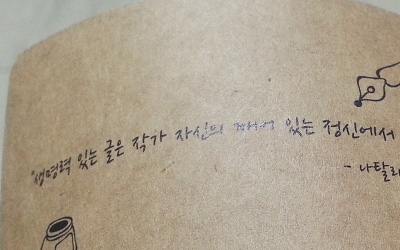 "생명력 있는 글은 작가 자신의 깨어 있는 정신에서
- 나탈리